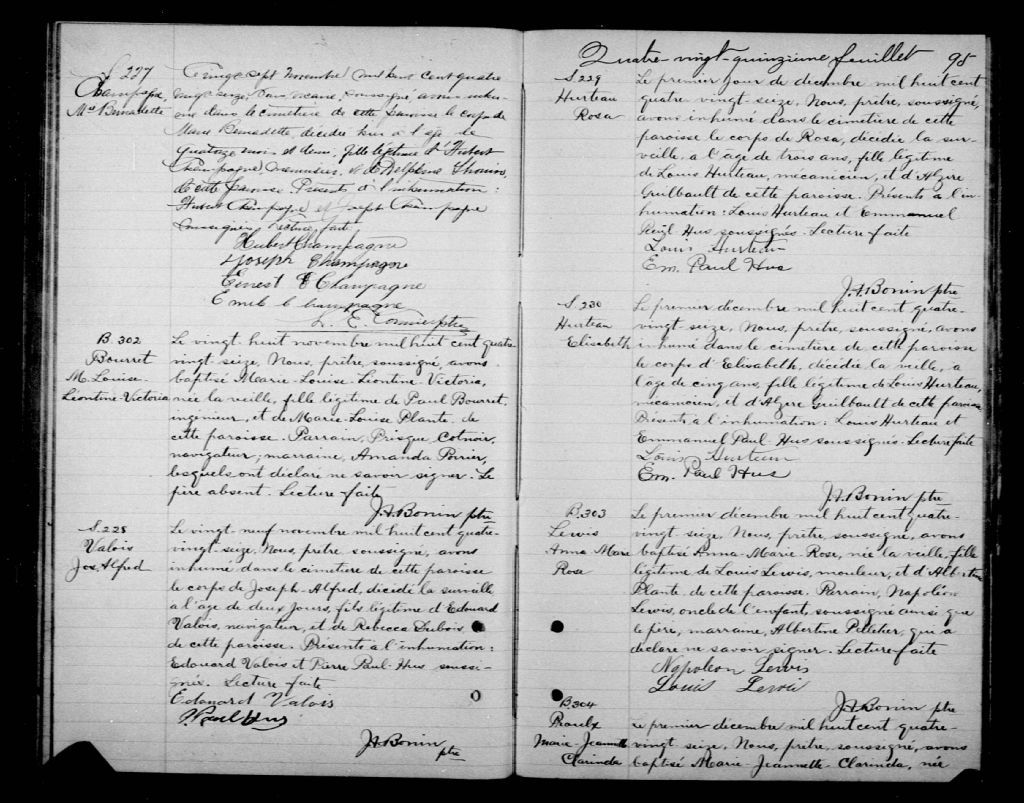 S. 227
Champagne
Mie Bernadette
Vingt sept Novembre mil huit cent quatre
vingt seize, Nous vicaire, soussigné avons inhu-
mé dans le cimetière de cette paroisse le corps de
Marie Bernadette décédée hier à l'age de
quatorze mois et demi, fille légitime d'Hubert
Champagne menuisier, et de Delphine
de cette paroisse. Présents à l'inhumation:
Hubert Champagne et Joseph Champagne
soussignés, lecture faite.
Hubert Champagne
Joseph Champagne
Ernest E Champagne
Emile Champagne
L. E. Cormier ptre
B. 302
Bourret
M. Louise-
Léontine-Victoria
Le vingt huit novembre mil huit cent quatre-
vingt-seize, Nous, prêtre, soussigné, avons
baptisé Marie-Louise-Léontine-Victoria,
née la veille, fille légitime de Paul Bourret,
ingénieur, et de Marie-Louise Plante, de
cette paroisse. Parrain, Prisque Cotnoir,
navigateur; marraine, Amanda Poirier,
lesquels ont déclaré ne savoir signer. Le
père absent. Lecture faite
J. A. Bonin ptre
S. 228
Valois
Jos. Alfred
Le vingt neuf novembre mil huit cent quatre-
vingt-seize, Nous, prêtre soussigné, avons
inhumé dans le cimetière de cette paroisse
le corps de Joseph-Alfred, décédé la surveille
a l'âge de deux jours, fils légitime d'Edouard
Valois, navigateur, et de Rebecca Dubois
de cette paroisse. Présents à l'inhumation:
Edouard Valois et Pierre Paul-Hus soussi-
gnés. Lecture faite
Edouard Valois
P. Paul Hus
J A Bonin ptre
Quatre-vingt-quinzième feuillet 95
S. 229
Hurteau
Rosa
Le premier jour de décembre mil huit cent
quatre-vingt-seize, Nous, prêtre, soussigné,
avons inhumé dans le cimetière de cette
paroisse le corps de Rosa, décédée la sur-
veille, a l'âge de trois ans, fille légitime
de Louis Hurteau, mécanicien, et d'Alzire
Guilbault de cette paroisse. Présents à l'in-
humation: Louis Hurteau et Emmanuel
Paul-Hus soussignés. Lecture faite
Louis Hurteau
Em. Paul Hus
J. A. Bonin ptre
S. 230
Hurteau
Elisabeth
Le premier décembre mil huit cent quatre-
vingt seize, Nous, prêtre, soussigné, avons
inhumé dans le cimetière de cette paroisse
le corps d'Elisabeth, décédée la veille, a
l'âge de cinq ans, fille légitime de Louis Hurteau,
mécanicien, et d'Alzire Guilbault de cette paroisse
Présents à l'inhumation: Louis Hurteau et
Emmanuel Paul-Hus soussignés. Lecture faite
Louis Hurteau
Em. Paul Hus
J. A. Bonin ptre
B. 303
Lewis
Anna Marie
Rose
Le premier décembre mil huit cent quatre-
vingt-seize, Nous, prêtre, soussigné, avons
baptisé Anna-Marie-Rose, née la veille, fille
légitime de Louis Lewis, mouleur, et d'Albertine
Plante, de cette paroisse. Parrain, Napoléon
Lewis, oncle de l'enfant, soussigné ainsi que
le père, marraine, Albertine Pelletier, qui a
déclaré ne savoir signer. Lecture faite
Napoleon Lewis
Louis Lewis
J A Bonin ptre
B. 304
Proulx
Marie-Jeannette
Clarinda
Le premier décembre mil huit cent quatre-
vingt seize, Nous, prêtre, soussigné, avons
baptisé Marie-Jeannette-Clarinda, née